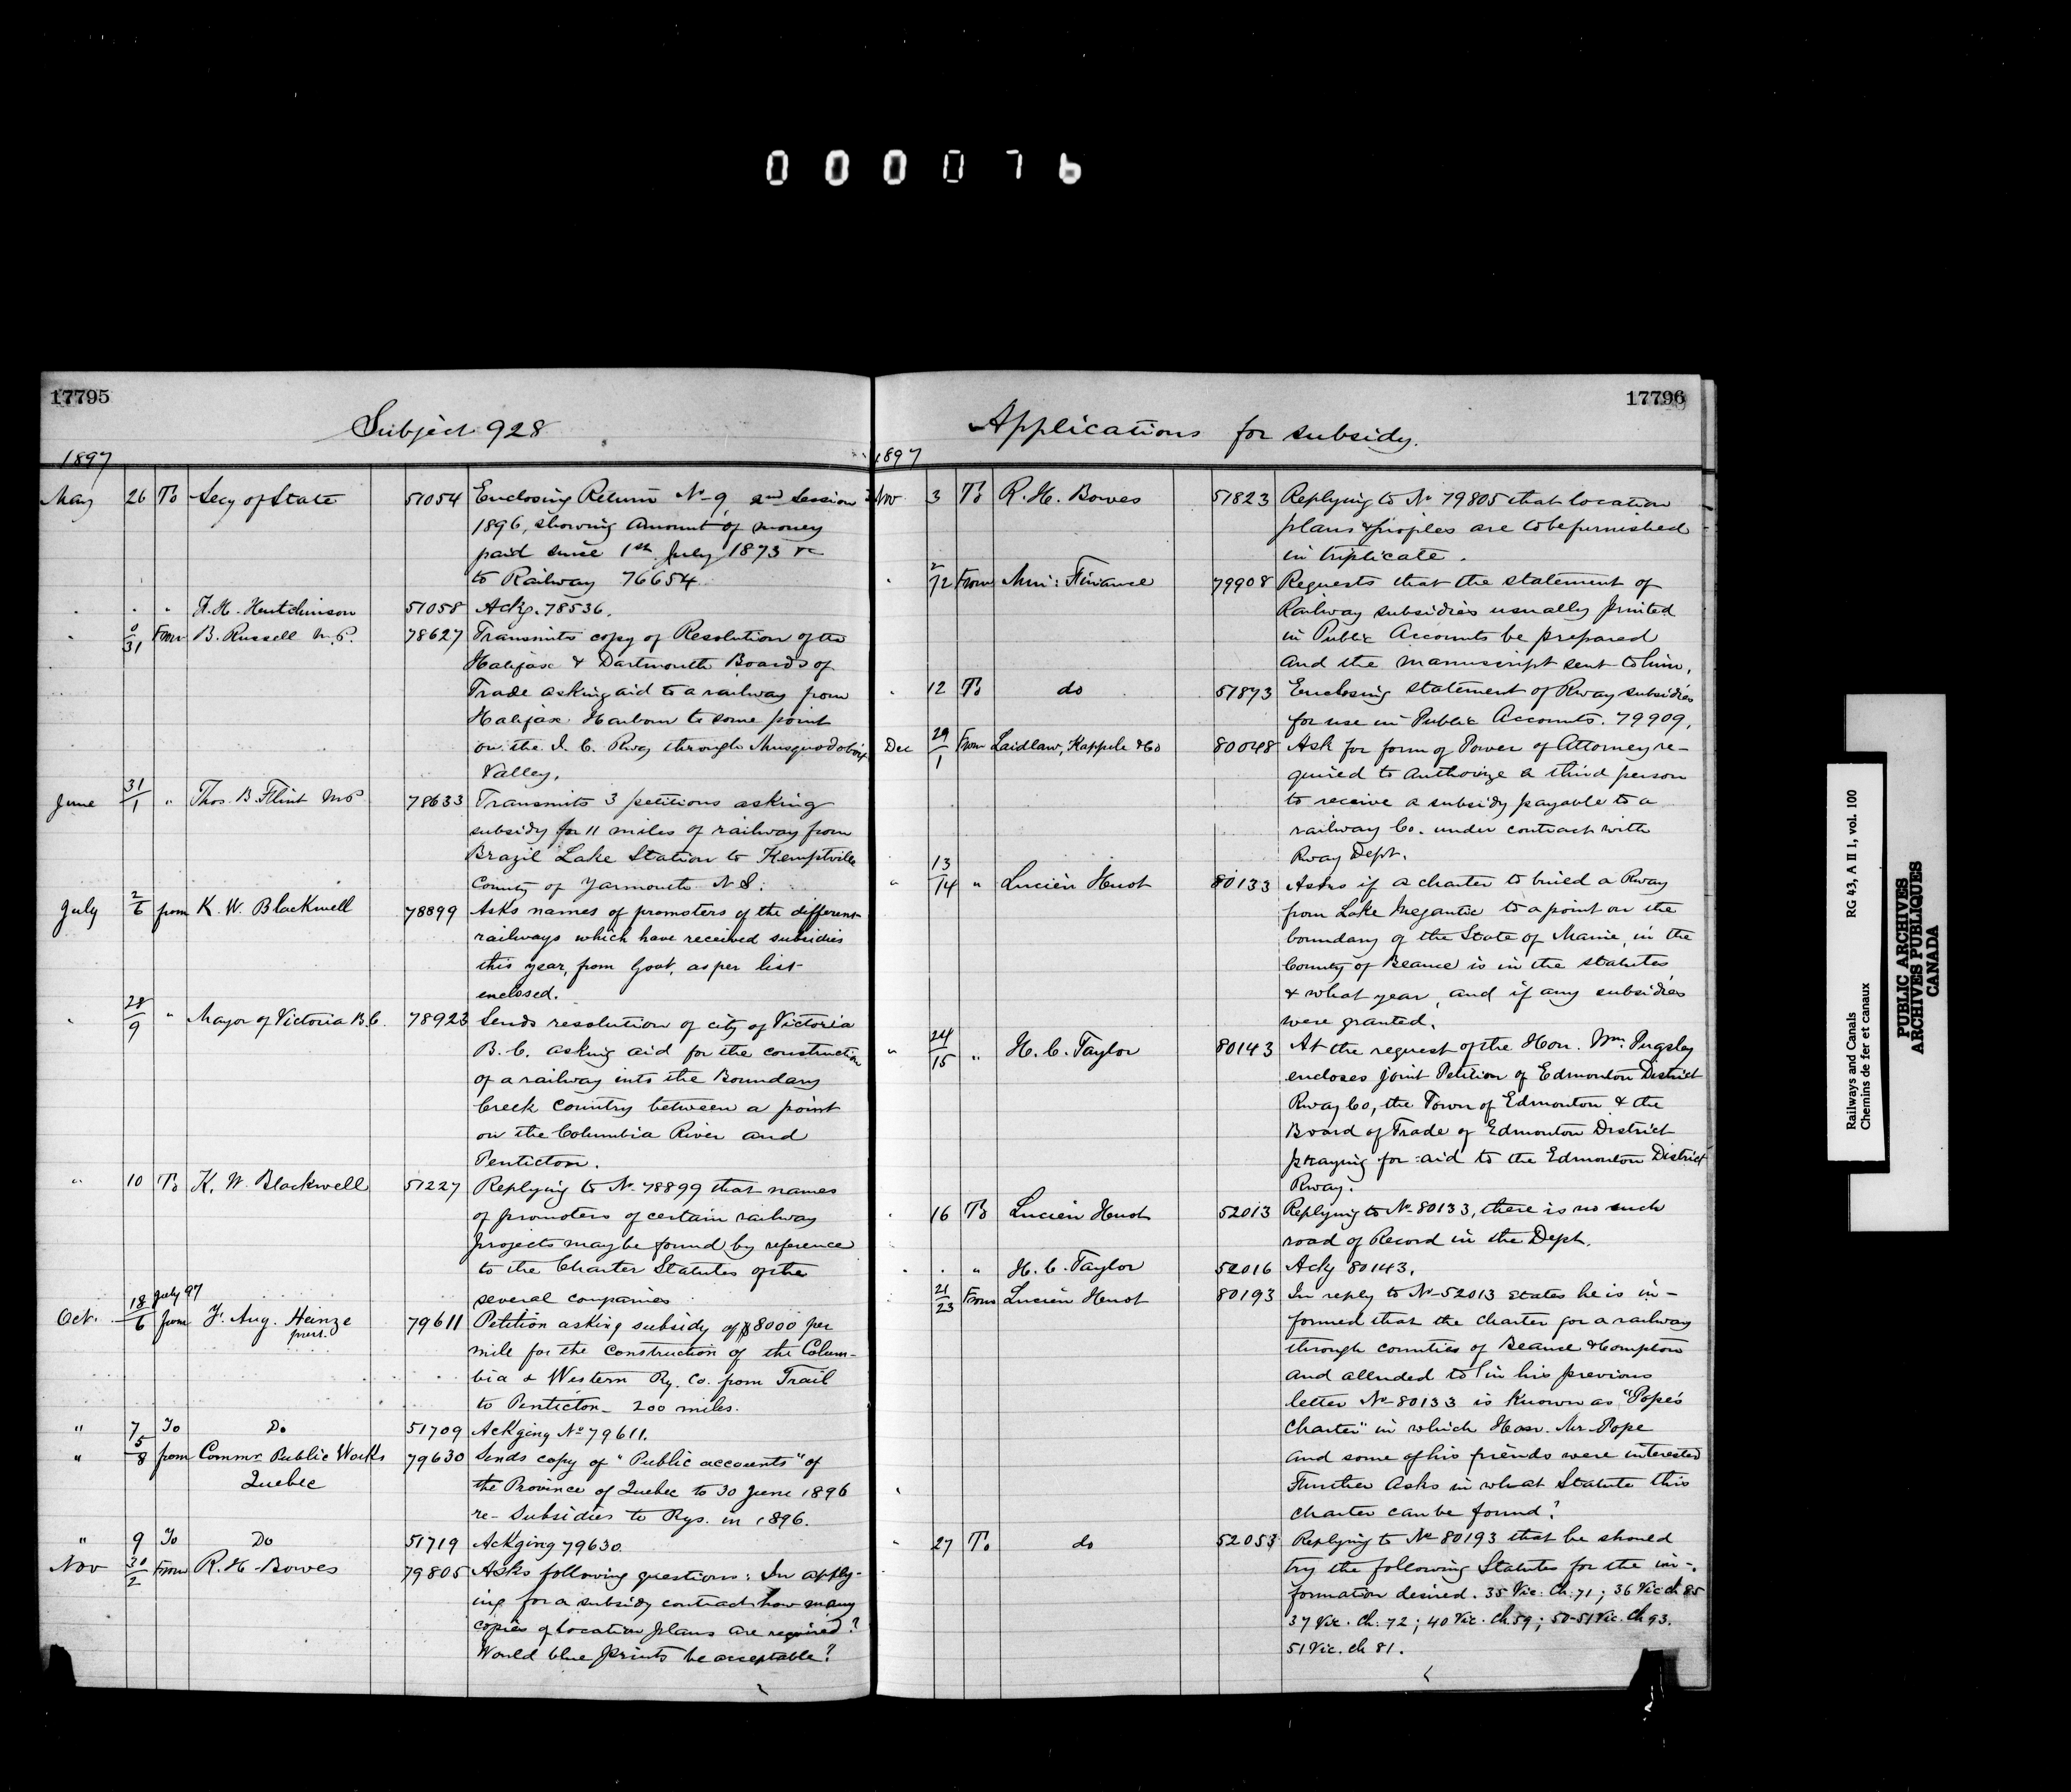 000076
17795
Subject 928
1897
May 26 To Secy of State 51054 Enclosing Return No 9, 2nd Session
1896, showing Amount of money
paid since 1st July 1873 &c
to Railway 76654
" " " F. H. Hutchinson 51058 Ackg. 78536.
" 31 From B. Russell M.P. 78627 Transmits copy of Resolution of the
Halifax & Dartmouth Boards of
Trade asking aid to a railway from
Halifax Harbour to some point
on the I. C. Rway through Musquodoboit
Valley.
June 31/1 " Thos. B. Flint MP 78633 Transmits 3 petitions asking
subsidy for 11 miles of railway from
Brazil Lake Station to Kemptville
County of Yarmouth N S.
July 2/6 from K. W. Blackwell 78899 Asks names of promoters of the different
railways which have received subsidies
this year, from Govt, as per list
enclosed.
" 28/9 " Mayor of Victoria B.C. 78923 Sends resolution of city of Victoria
B. C. asking aid for the construction
of a railway into the Boundary
Creek Country between a point
on the Columbia River and
Penticton.
" 10 To K. W. Blackwell 51227 Replying to No. 78899 that names
of promoters of certain railway
projects may be found by reference
to the Charter Statutes of the
several companies
Oct. 18 July 97/6 from F. Aug. Heinze 79611 Petition asking subsidy of $8000 per
prest.
mile for the Construction of the Colum-
bia & Western Ry. Co. from Trail
to Penticton - 200 miles.
" 7 To Do 51709 Ackging No 79611.
" 5/8 from Commr Public Works 79630 Sends copy of "Public accounts" of
Quebec
the Province of Quebec to 30 June 1896
re- Subsidies to Rys. in 1896.
" 9 To Do 51719 Ackging 79630.
Nov 30/2 From R. H. Bowes 79805 Asks following questions: In apply-
ing for a subsidy contract how many
copies of location plans are required?
Would blue prints be acceptable?
17796
Applications for subsidy.
1897
Nov 3 To R. H. Bowes 51823 Replying to No 79805 that location
plans & profiles are to be furnished
in triplicate.
" 2/12 From Min: Finance 79908 Requests that the statement of
Railway subsidies usually printed
in Public Accounts be prepared
and the manuscript sent to him.
" 12 To do 51873 Enclosing statement of Rway subsidies
for use in Public Accounts. 79909.
Dec 29/1 From Laidlaw, Kappele & Co 80048 Ask for form of Power of Attorney re-
quired to authorize a third person
to receive a subsidy payable to a
railway Co. under contract with
Rway Dept.
" 13/14 " Lucien Huot 80133 Asks if a charter to build a Rway
from Lake Megantic to a point on the
boundary of the State of Maine, in the
County of Beauce is in the statutes
& what year, and if any subsidies
were granted.
" 24/15 " H. C. Taylor 80143 At the request of the Hon. Wm. Pugsley
encloses joint Petition of Edmonton District
Rway Co, the Town of Edmonton & the
Board of Trade of Edmonton District
praying for aid to the Edmonton District
Rway.
" 16 To Lucien Huot 52013 Replying to No 80133, there is no such
road of Record in the Dept.
" " " H. C. Taylor 52016 Ackg 80143.
21/23 From Lucien Huot 80193 In reply to No 52013 states he is in-
formed that the charter for a railway
through counties of Beauce & Compton
and alluded to in his previous
letter No 80133 is known as "Pope's
Charter" in which Hon. Mr. Pope
and some of his friends were interested
Further Asks in what Statute this
charter can be found?
" 27 To do 52053 Replying to No 80193 that he should
try the following Statutes for the in-
formation desired. 35 Vic. Ch. 71; 36 Vic ch 85
37 Vic. Ch. 72; 40 Vic. Ch. 59; 50-51 Vic. Ch 93.
51 Vic. ch 81.
Railways and Canals RG 43, A II 1, vol. 100
Chemins de fer et canaux
PUBLIC ARCHIVES
ARCHIVES PUBLIQUES
CANADA